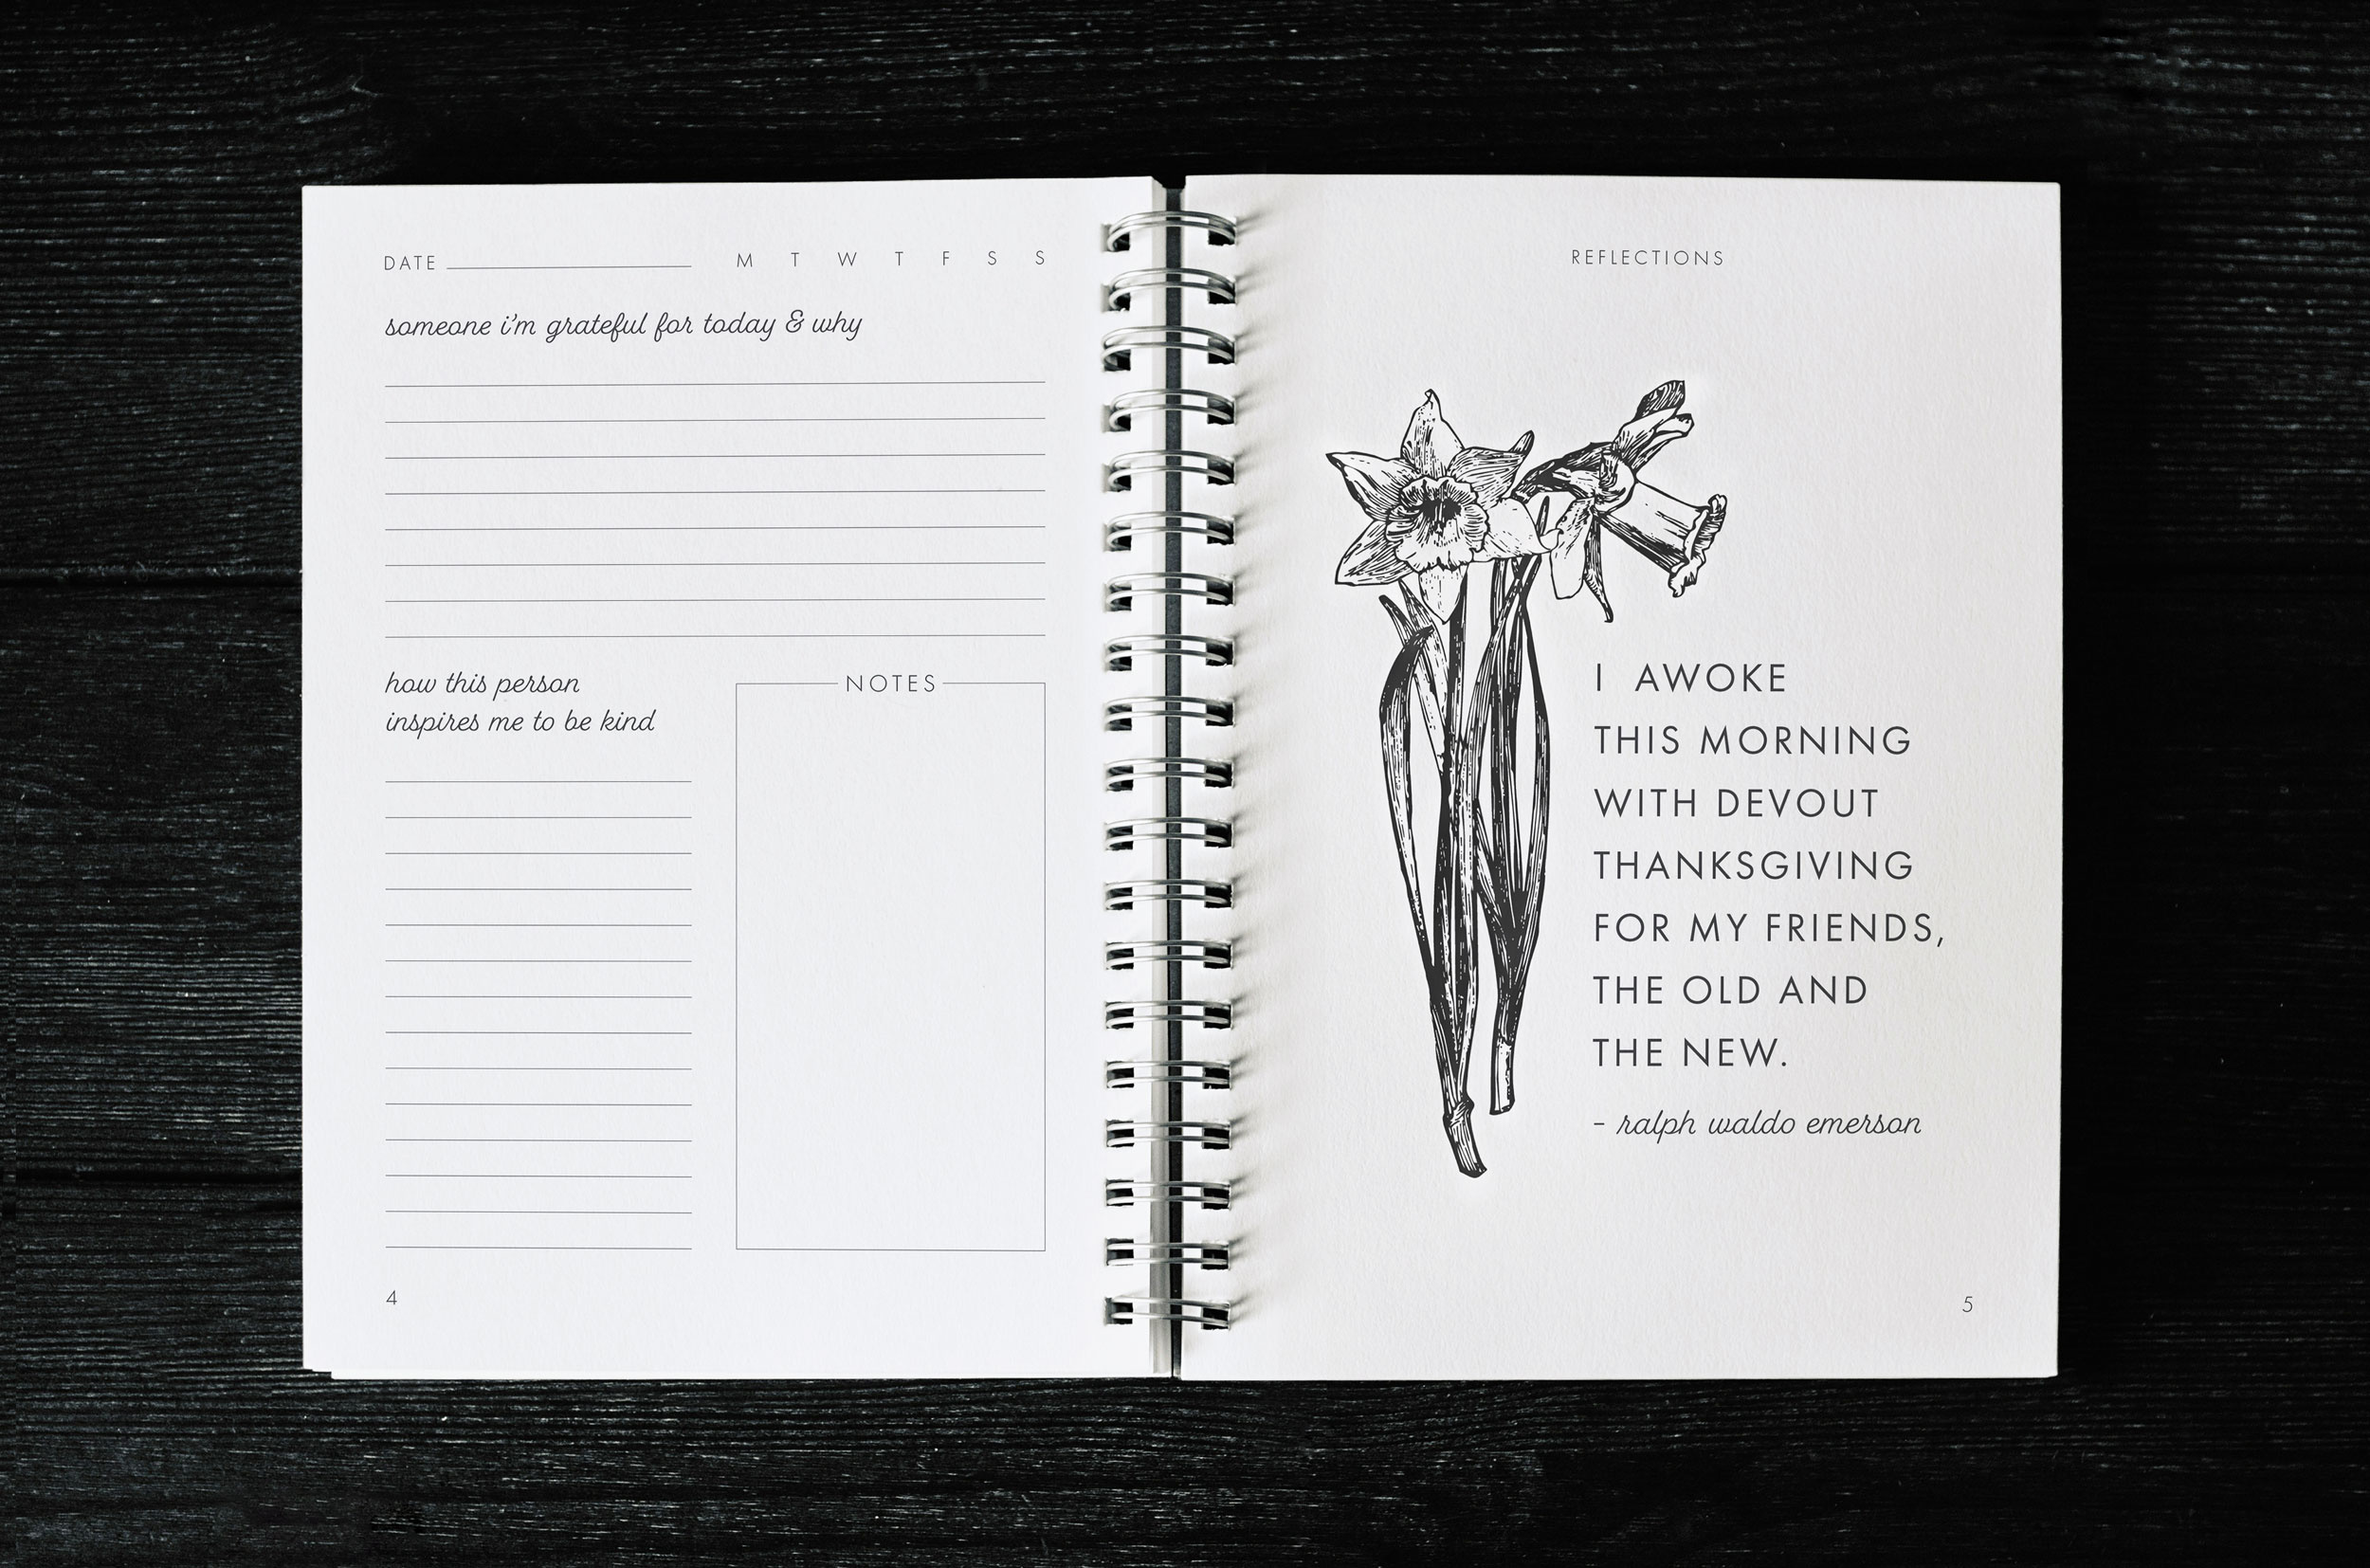 DATE M T W T F S S
someone i'm grateful for today & why
how this person
inspires me to be kind
NOTES
4
REFLECTIONS
I AWOKE
THIS MORNING
WITH DEVOUT
THANKSGIVING
FOR MY FRIENDS,
THE OLD AND
THE NEW.
- ralph waldo emerson
5